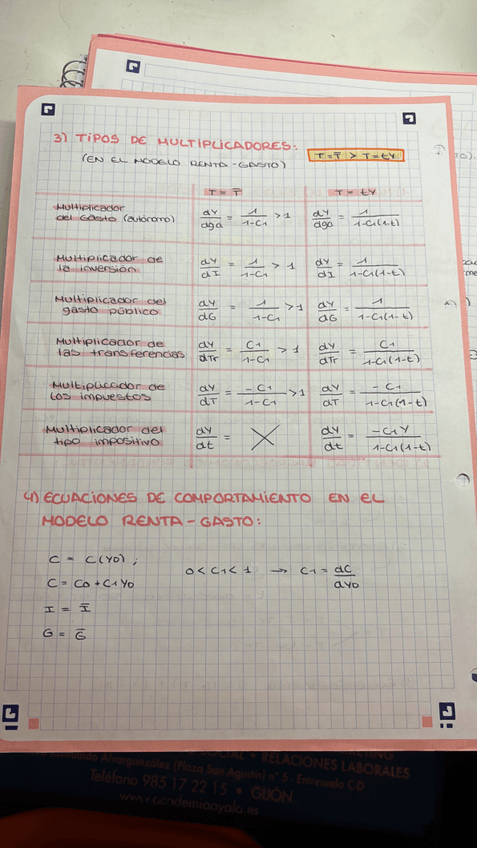 3) TIPOS DE MULTIPLICADORES:
(EN EL MODELO RENTA-GASTO)
T = T̅ > T = tY
T = T̅
T = tY
Multiplicador del Gasto (autónomo)
dY/dga = 1/1-C1 > 1
dY/dga = 1/1-C1(1-t)
Multiplicador de la inversión
dY/dI = 1/1-C1 > 1
dY/dI = 1/1-C1(1-t)
Multiplicador del gasto público
dY/dG = 1/1-C1 > 1
dY/dG = 1/1-C1(1-t)
Multiplicador de las transferencias
dY/dTr = C1/1-C1 > 1
dY/dTr = C1/1-C1(1-t)
Multiplicador de los impuestos
dY/dT = -C1/1-C1 > 1
dY/dT = -C1/1-C1(1-t)
Multiplicador del tipo impositivo
dY/dt = X
dY/dt = -C1Y/1-C1(1-t)
4) ECUACIONES DE COMPORTAMIENTO EN EL
MODELO RENTA-GASTO:
C = C(YD);
C = C0 + C1YD
0 < C1 < 1 → C1 = dC/dYD
I = I̅
G = G̅
RELACIONES LABORALES
Alvargonzález (Plaza San Agustín) nº 5 · Entresuelo C-D
Teléfono 985 17 22 15 • GIJÓN
www.academiaayala.es